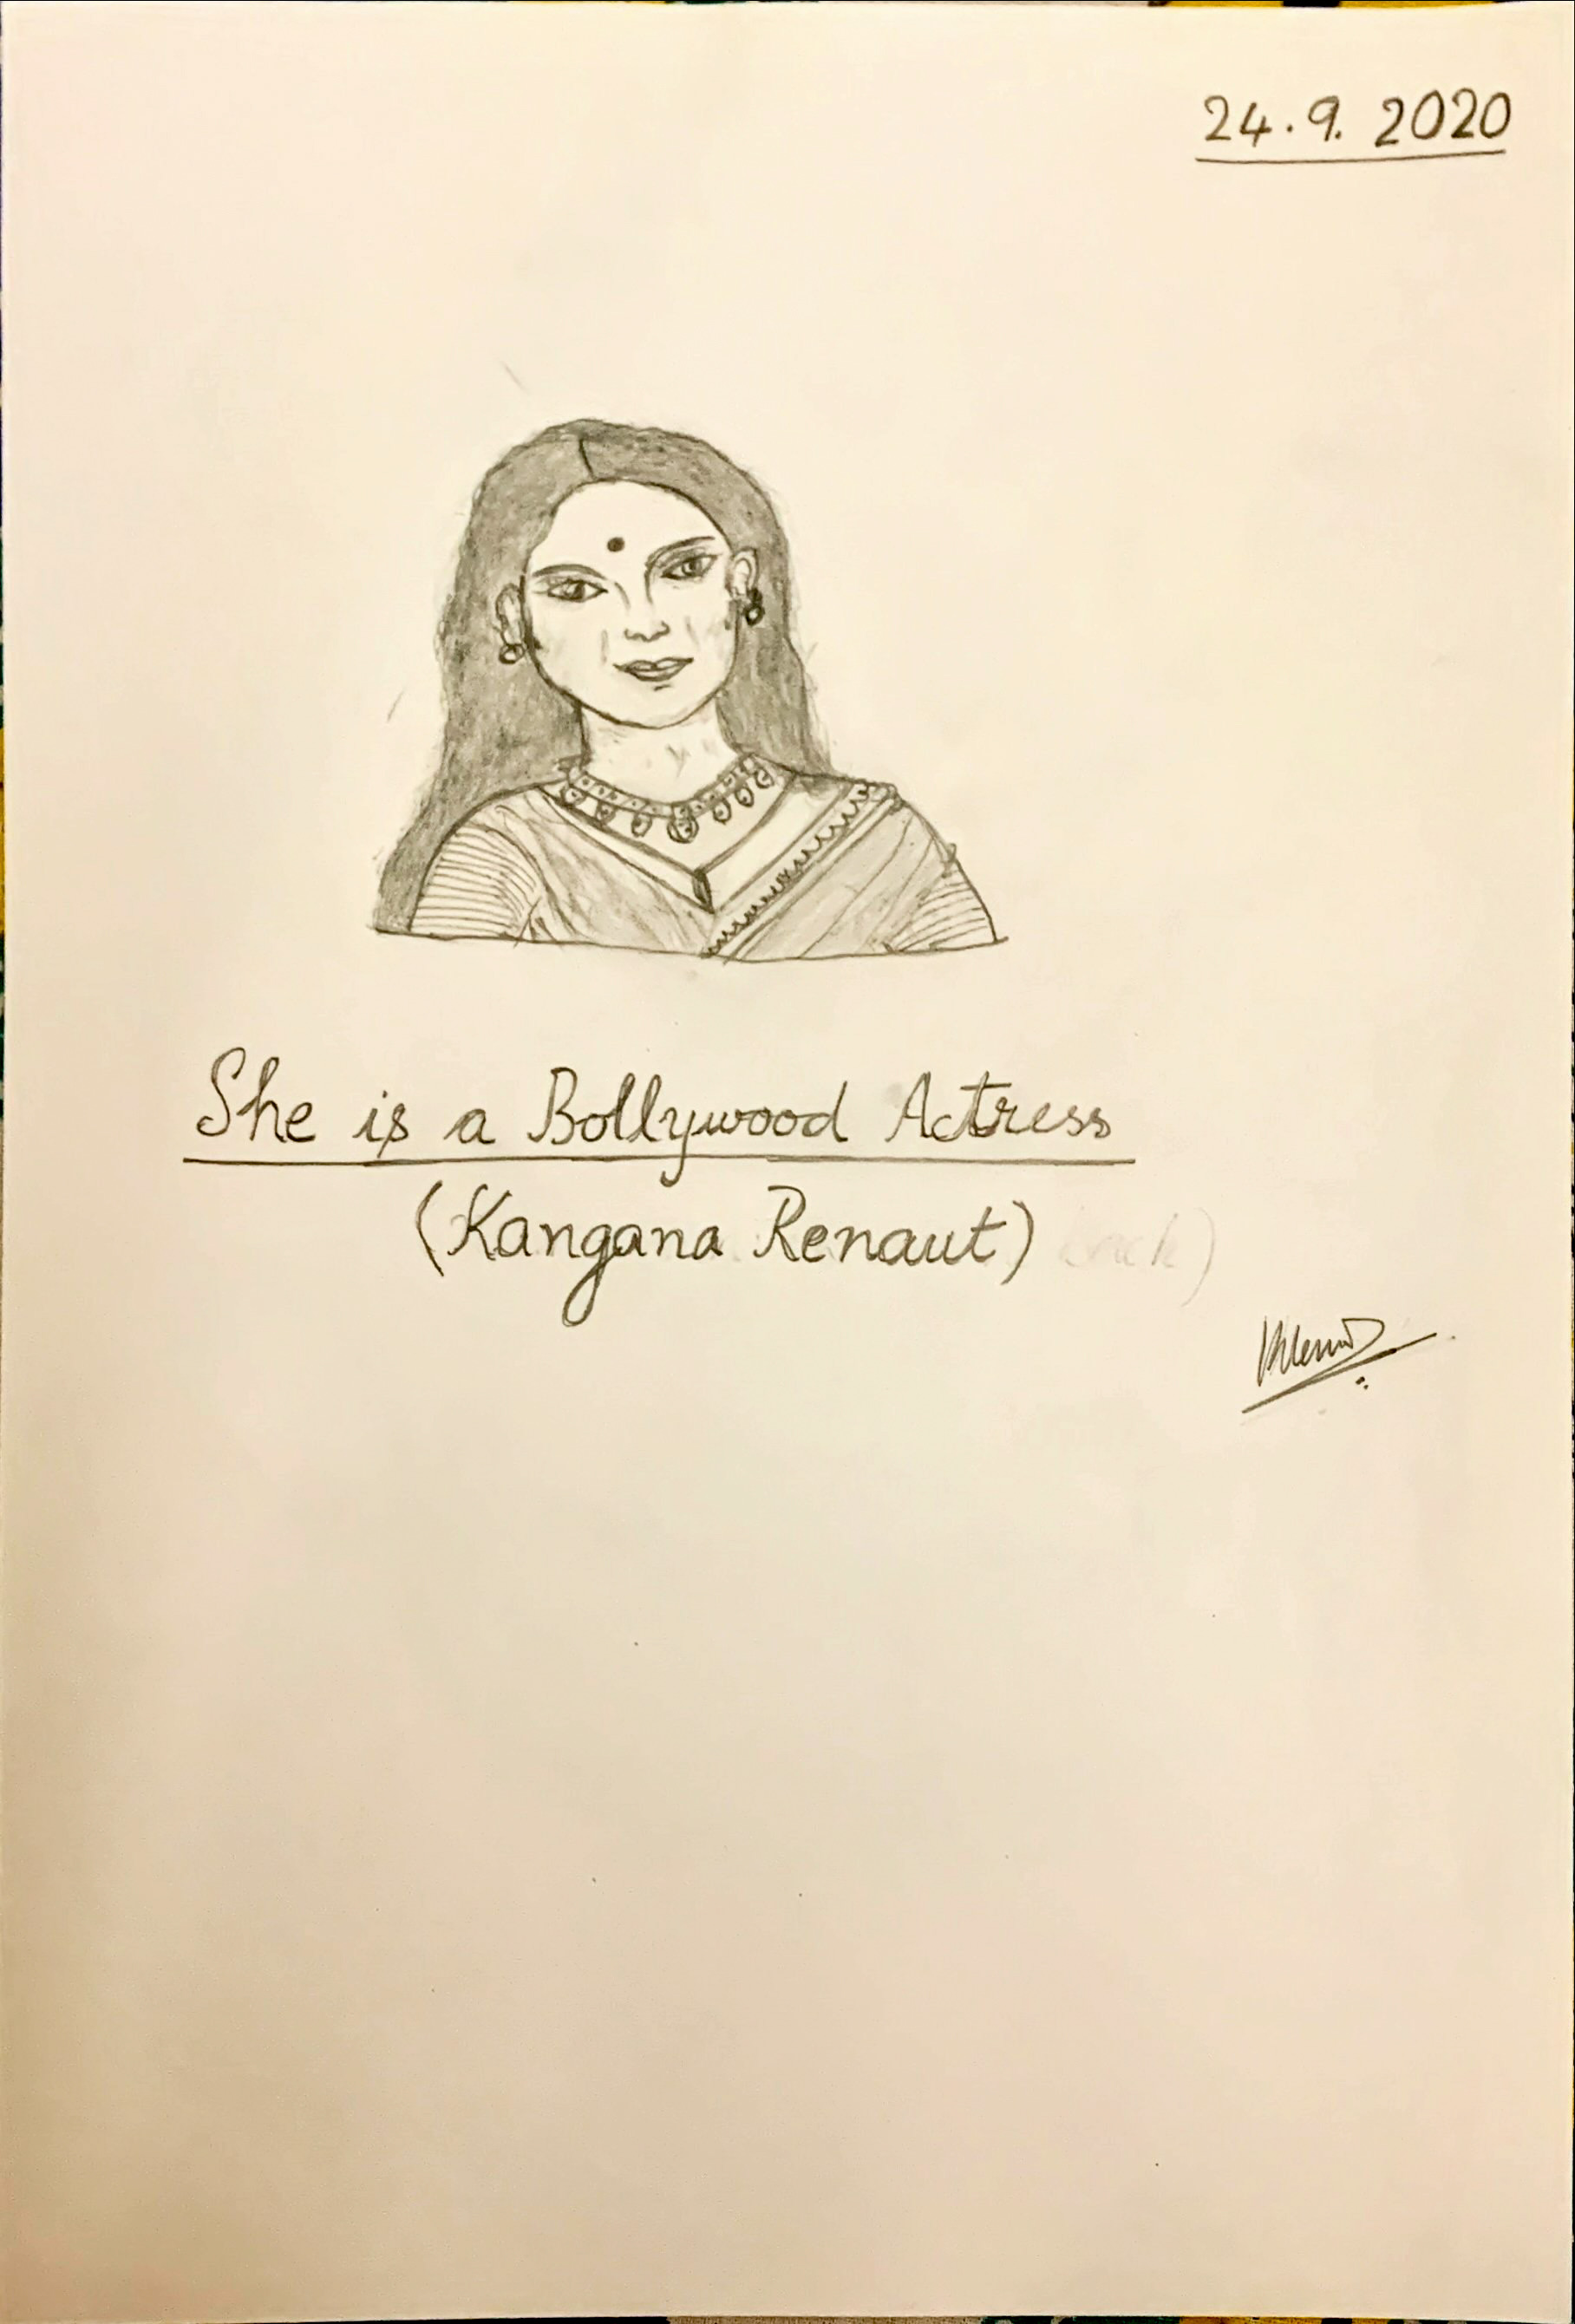 24.9.2020
She is a Bollywood Actress
(Kangana Renaut)